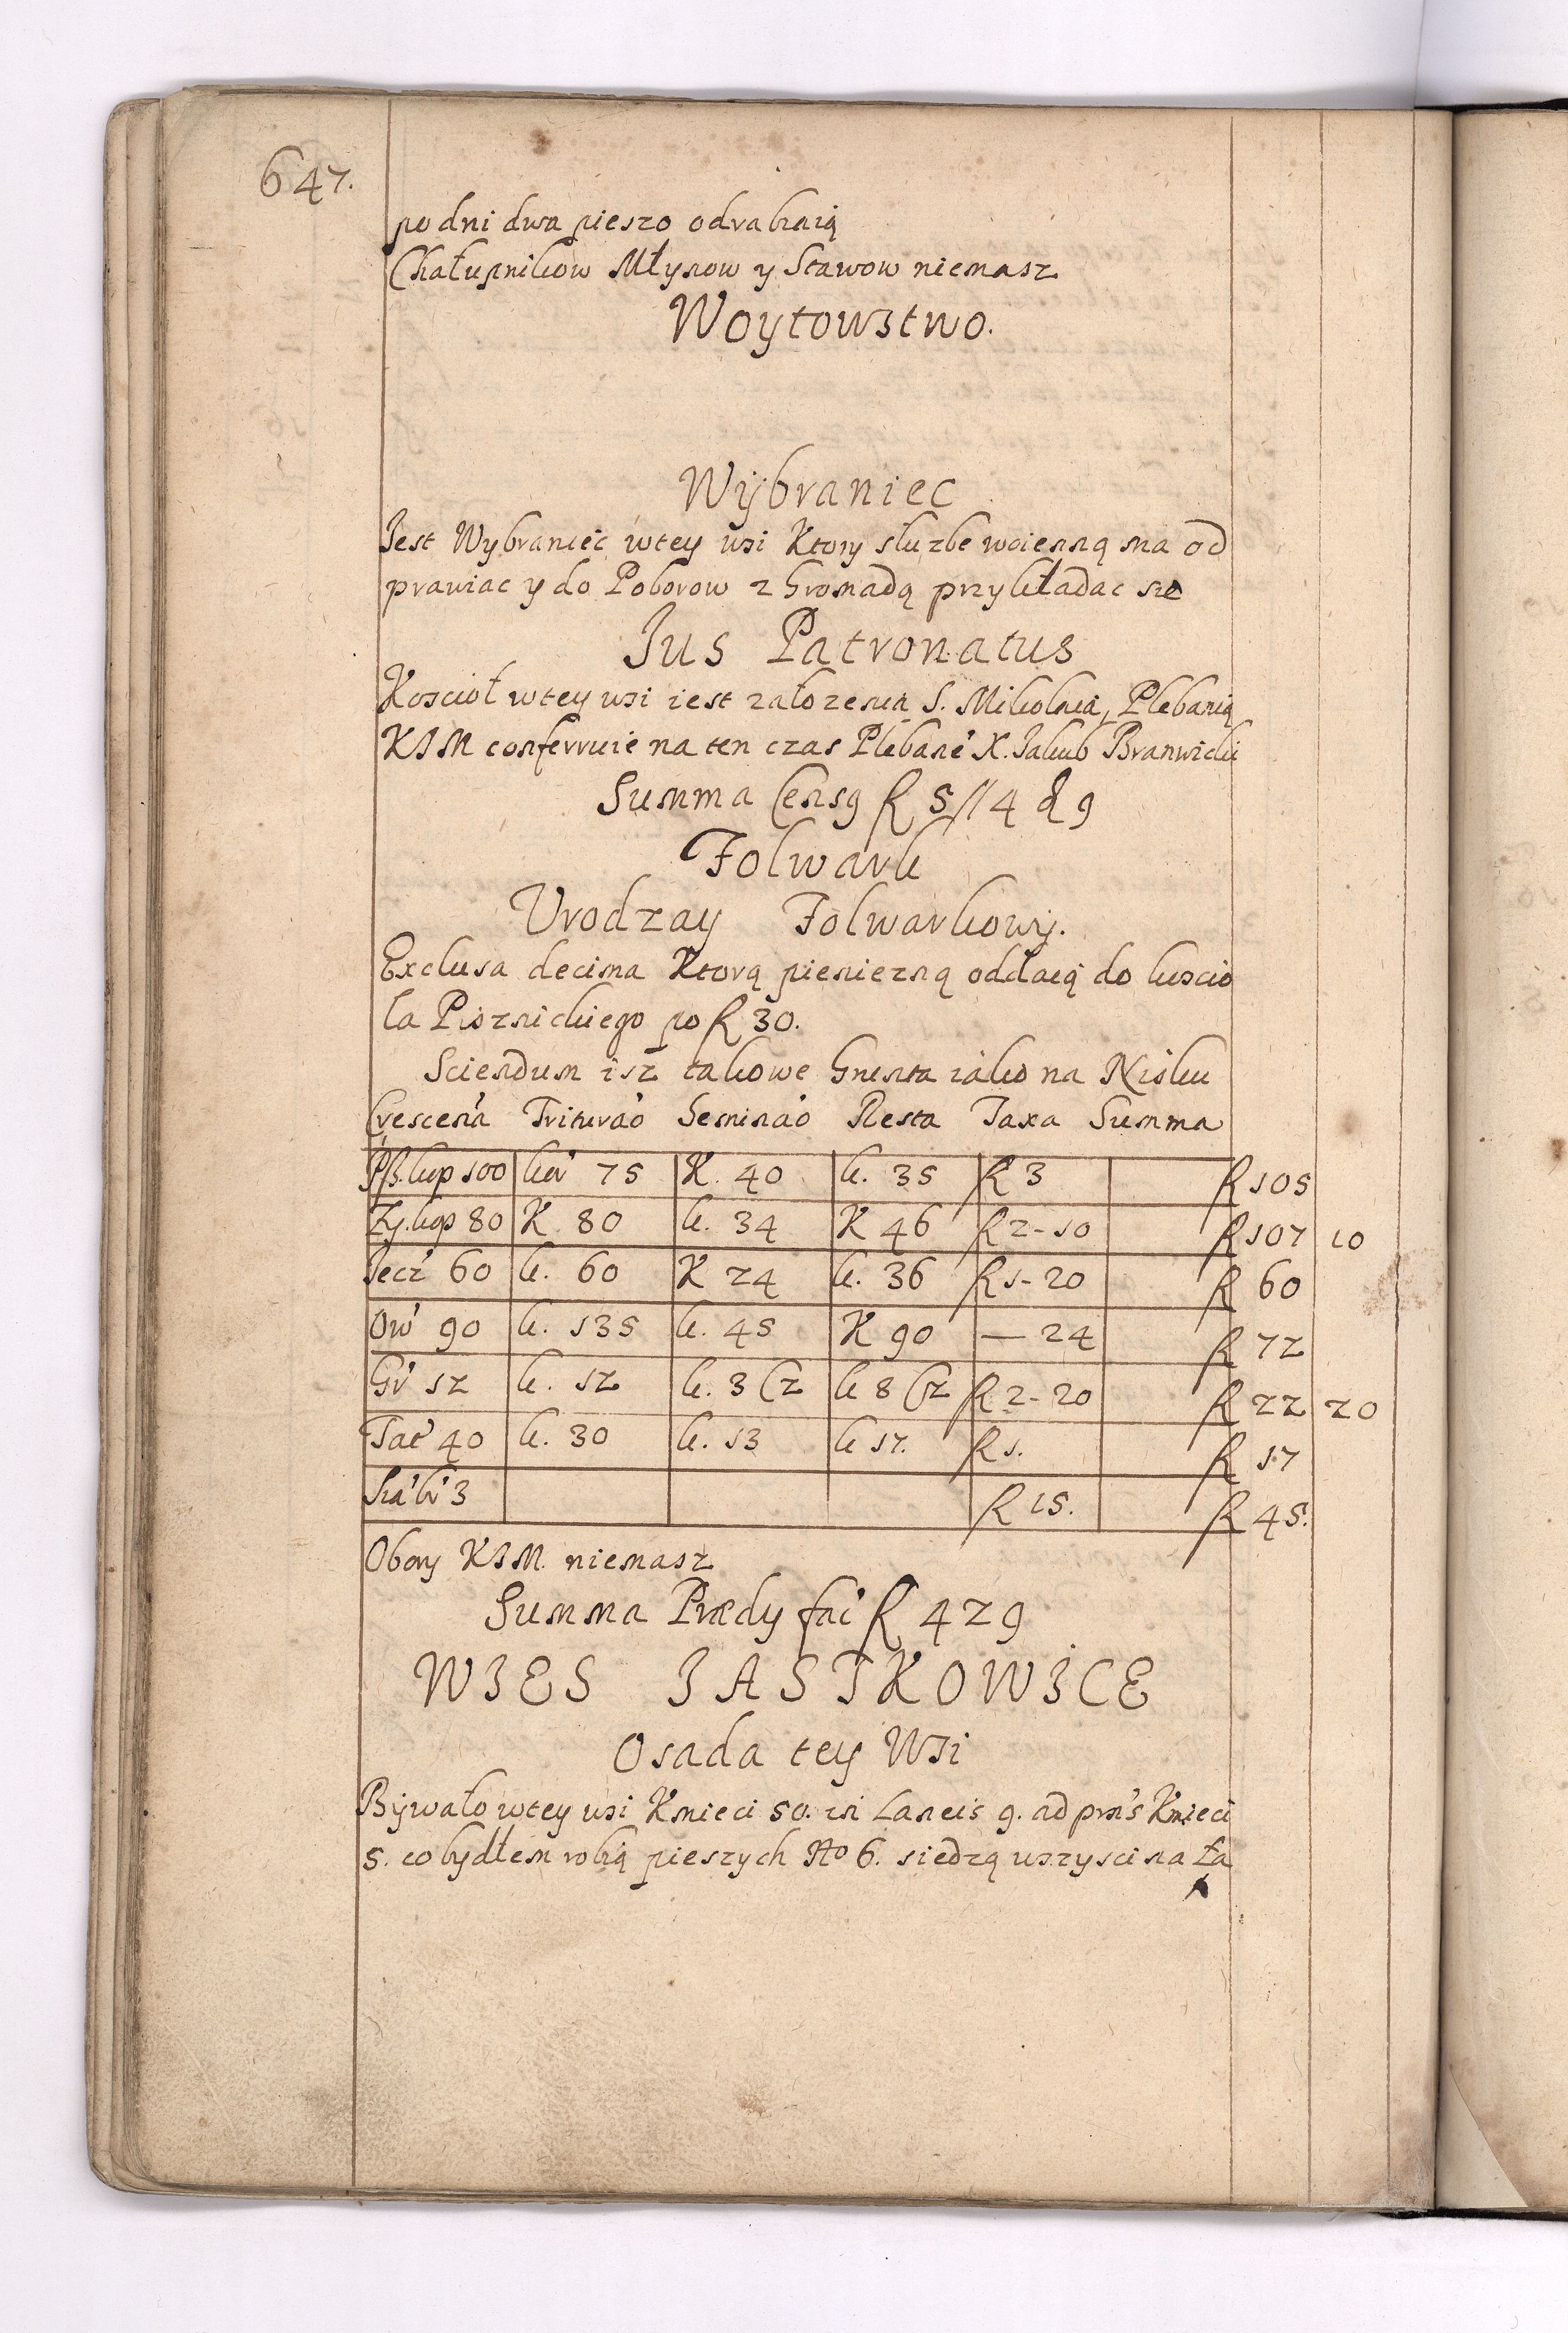 647.
po dni dwa pieszo odrabiaią
Chałupnikow Młynow y Stawow niemasz
Woytowstwo.
Wÿbraniec
Jest Wybraniec wtey wsi Ktory słuzbe woienną ma od
prawiac y do Poborow z Gromadą przykładac sie
Jus Patronatus
Koscioł wtey wsi iest załozenia S. Mikołaia, Plebanią
KJM conferruie na ten czas Plebane X. Jakub Branwicki
Summa Censg R 5 // 4 d 9
Folwark
Urodzay Folwarkowÿ.
Exclusa decima Ktorą pieniezną oddaią do koscio
la Pisznickiego po R 30.
Sciendum isz takowe Grunta iako na Nisku
Crescena Triturao Seminao Resta Taxa Summa
Pß. kop 100 kor 75 K. 40 k. 35 R 3 R 105
Zy. kop 80 K 80 k. 34 K 46 R 2-10 R 107 10
Jecz 60 k. 60 K 24 k. 36 R 1-20 R 60
Ow 90 k. 135 k. 45 K 90 — 24 R 72
Gr 12 k. 12 k. 3 k 8 R 2-20 R 22 20
Tat 40 k. 30 k. 13 k 17. R 1. R 17
3 R 15. R 45.
Obory KJM. niemasz
Summa Prædy fac R 429
WJES JASTKOWJCE
Osada tey Wsi
Bÿwało wtey wsi Kmieci 50. in Laneis 9. ad prns Kmieci
5. co bydłem robią pieszych No 6. siedzą wszysci na Ła